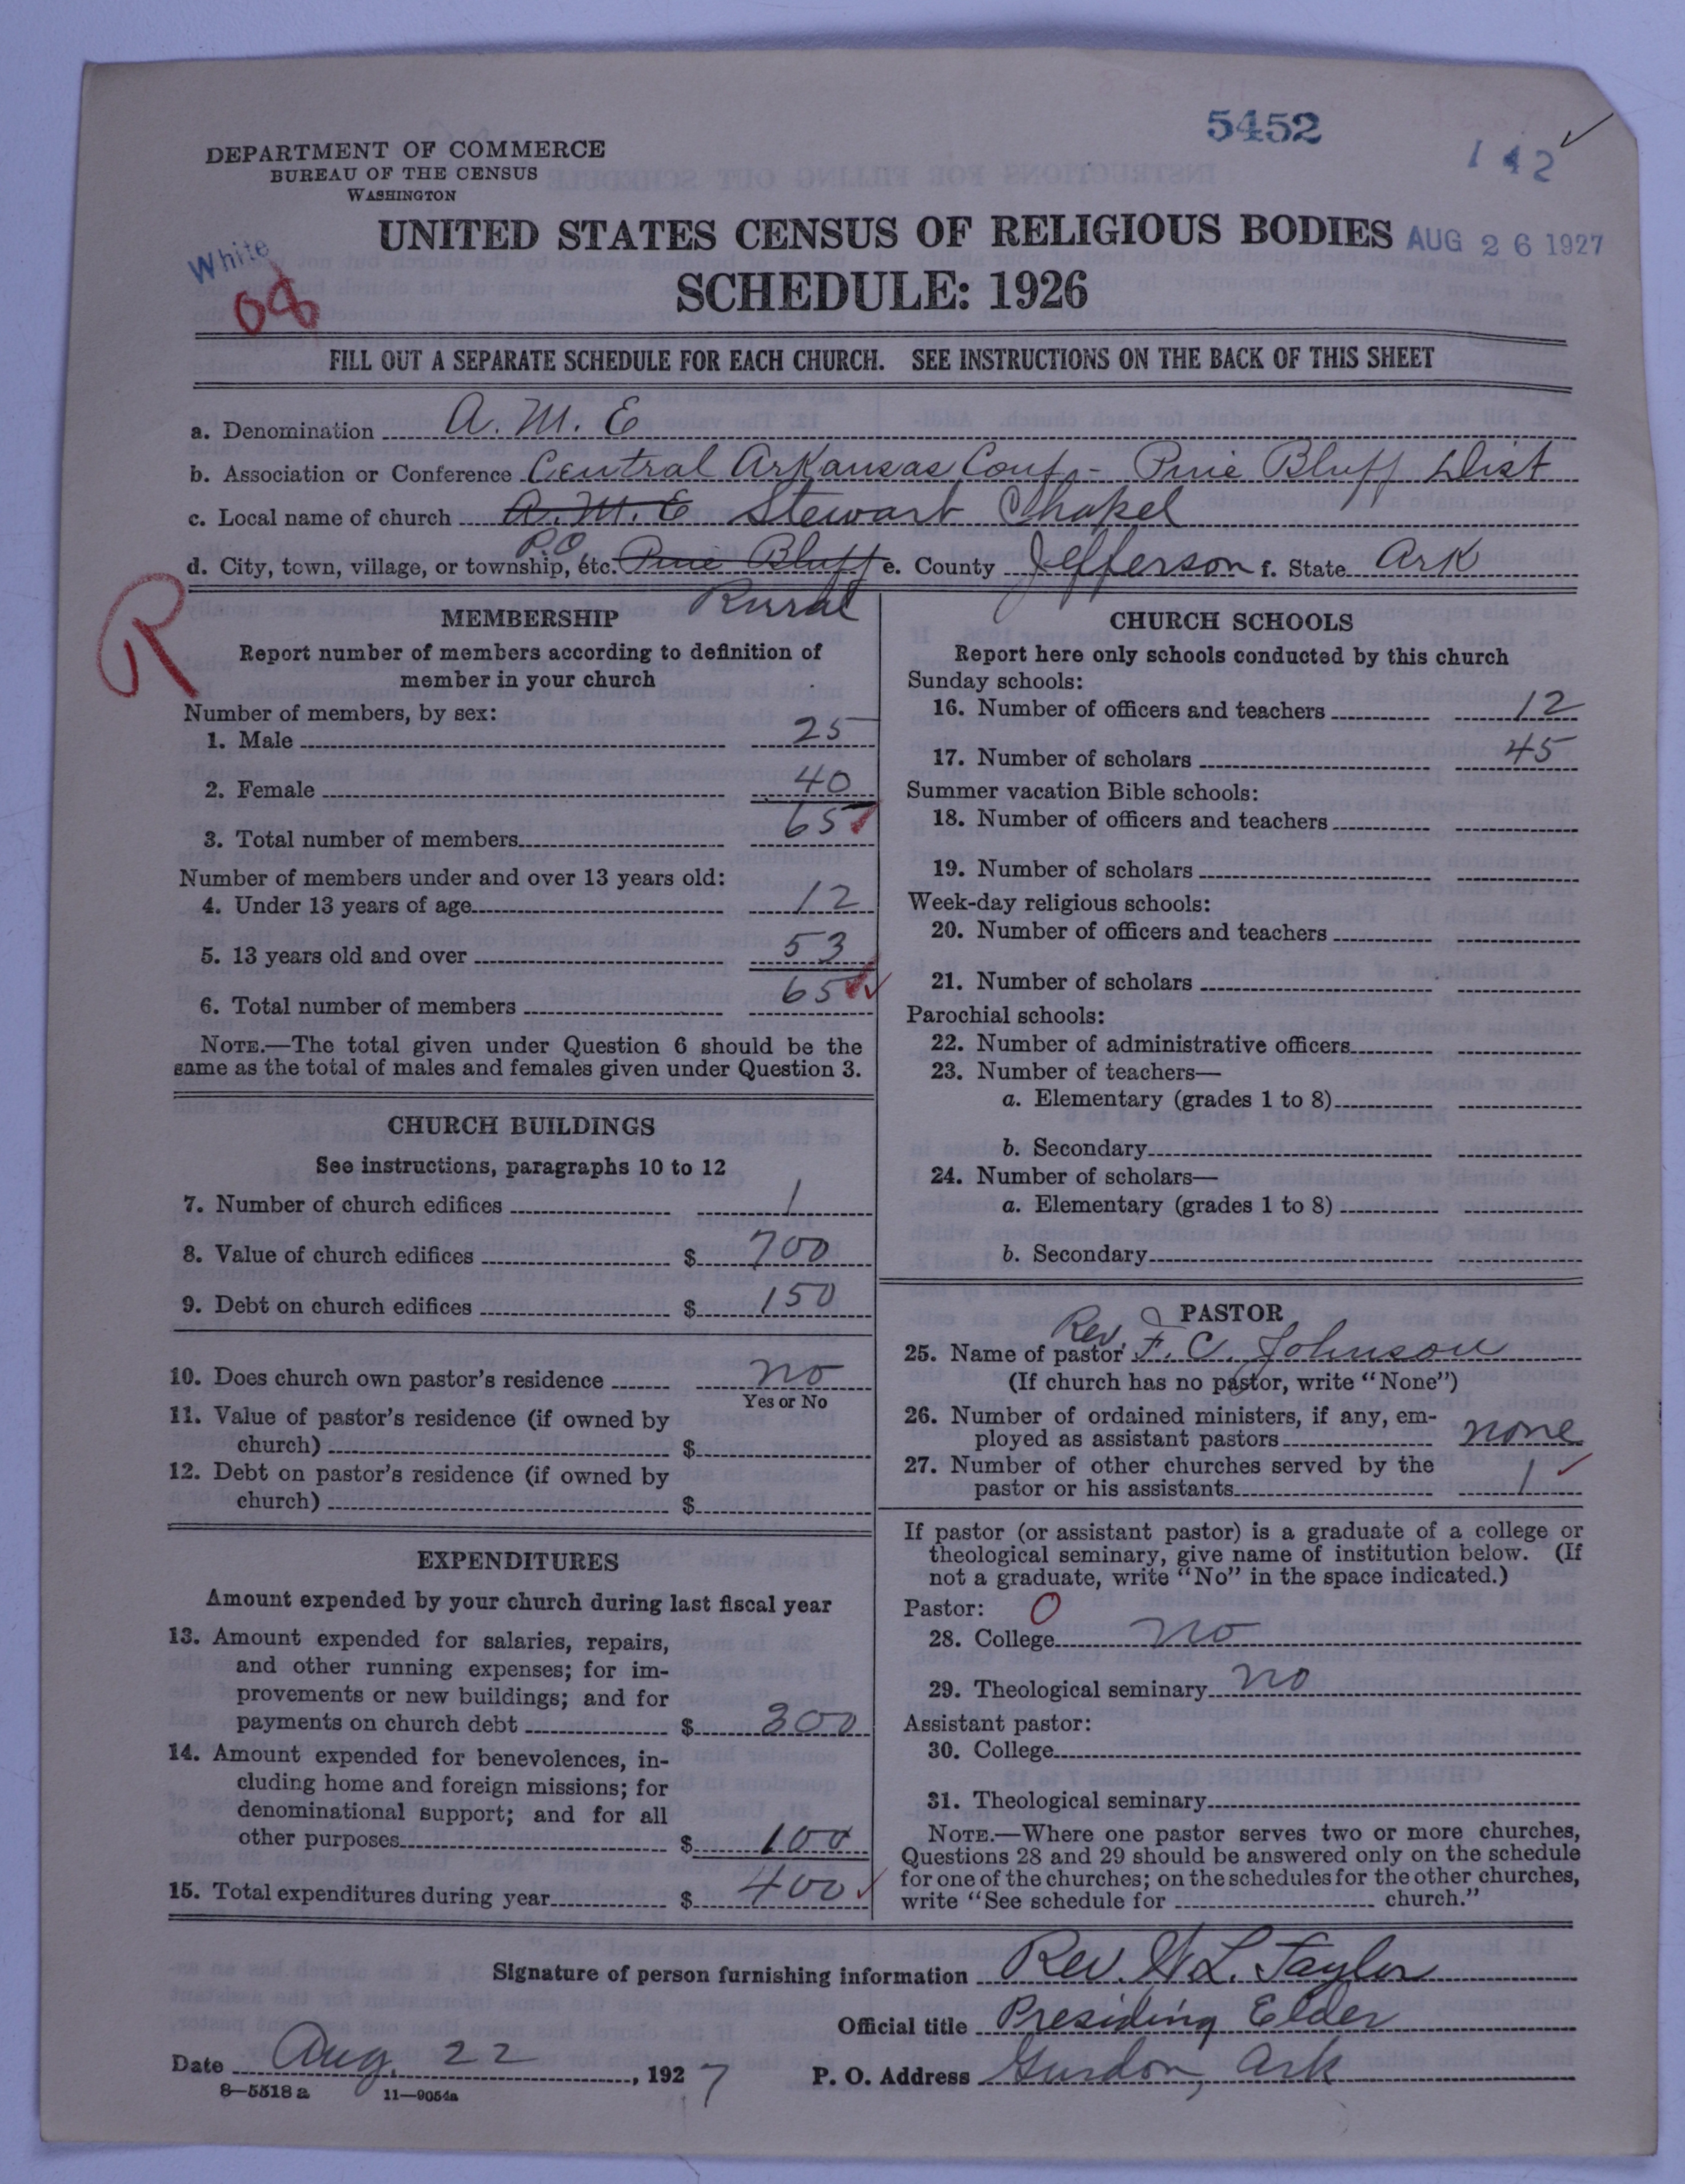 5452
142
DEPARTMENT OF COMMERCE
BUREAU OF THE CENSUS
WASHINGTON
UNITED STATES CENSUS OF RELIGIOUS BODIES
AUG 26 1927
White
08
SCHEDULE: 1926
FILL OUT A SEPARATE SCHEDULE FOR EACH CHURCH. SEE INSTRUCTIONS ON THE BACK OF THIS SHEET
a. Denomination A. M. E
b. Association or Conference Central Arkansas Conf - Pine Bluff Dist
c. Local name of church A. M. E Stewart Chapel
P.O.
d. City, town, village, or township, etc. Pine Bluff e. County Jefferson f. State Ark
Rural
R
MEMBERSHIP
Report number of members according to definition of
member in your church
Number of members, by sex:
1. Male 25
2. Female 40
3. Total number of members 65
Number of members under and over 13 years old:
4. Under 13 years of age 12
5. 13 years old and over 53
6. Total number of members 65
NOTE.—The total given under Question 6 should be the
same as the total of males and females given under Question 3.
CHURCH BUILDINGS
See instructions, paragraphs 10 to 12
7. Number of church edifices 1
8. Value of church edifices $ 700
9. Debt on church edifices $ 150
10. Does church own pastor's residence no
Yes or No
11. Value of pastor's residence (if owned by
church) $
12. Debt on pastor's residence (if owned by
church) $
EXPENDITURES
Amount expended by your church during last fiscal year
13. Amount expended for salaries, repairs,
and other running expenses; for im-
provements or new buildings; and for
payments on church debt $ 300
14. Amount expended for benevolences, in-
cluding home and foreign missions; for
denominational support; and for all
other purposes $ 100
15. Total expenditures during year $ 400
CHURCH SCHOOLS
Report here only schools conducted by this church
Sunday schools:
16. Number of officers and teachers 12
17. Number of scholars 45
Summer vacation Bible schools:
18. Number of officers and teachers
19. Number of scholars
Week-day religious schools:
20. Number of officers and teachers
21. Number of scholars
Parochial schools:
22. Number of administrative officers
23. Number of teachers—
a. Elementary (grades 1 to 8)
b. Secondary
24. Number of scholars—
a. Elementary (grades 1 to 8)
b. Secondary
PASTOR
25. Name of pastor Rev. F. C. Johnson
(If church has no pastor, write "None")
26. Number of ordained ministers, if any, em-
ployed as assistant pastors none
27. Number of other churches served by the
pastor or his assistants 1
If pastor (or assistant pastor) is a graduate of a college or
theological seminary, give name of institution below. (If
not a graduate, write "No" in the space indicated.)
Pastor: O
28. College no
29. Theological seminary no
Assistant pastor:
30. College
31. Theological seminary
NOTE.—Where one pastor serves two or more churches,
Questions 28 and 29 should be answered only on the schedule
for one of the churches; on the schedules for the other churches,
write "See schedule for church."
Signature of person furnishing information Rev. W. L. Taylor
Official title Presiding Elder
Date Aug. 22, 1927 P. O. Address Gurdon, Ark
8—5518 a 11—9054a